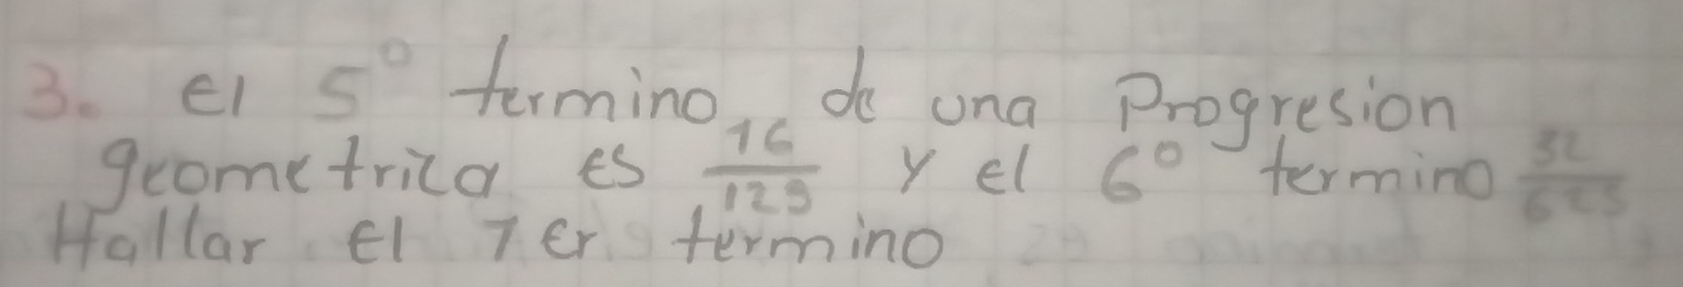 3. El 5° termino de una Progresion
geometrica es 16/125 y el 6° termino 32/625
Hallar El 1er termino